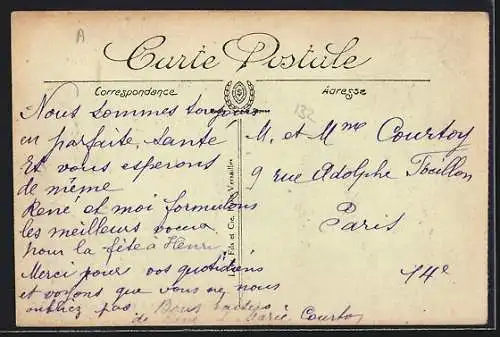 A
Carte Postale
Correspondance
Adresse
132
Nous sommes toujours
en parfaite santé
Et vous esperons
de même
René et moi formulons
les meilleurs voeux
pour la fête à Henri
Merci pour vos quotidiens
et voyons que vous ne nous
oubliez pas Bons baisers
de René et Marie Courtoy
Fils et Cie, Versailles
M. et Mme Courtoy
9 rue Adolphe Focillon
Paris
14e